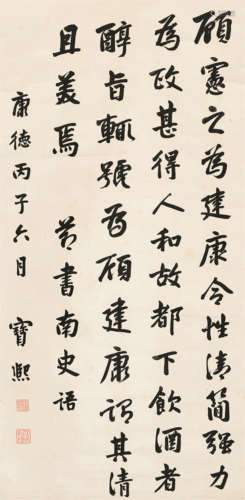 顾宪之為建康令性清简强力
為政甚得人和故都下飲酒者
醇旨輒號為顾建康謂其清
且美焉 節書南史語
康德丙子六月 寶熙